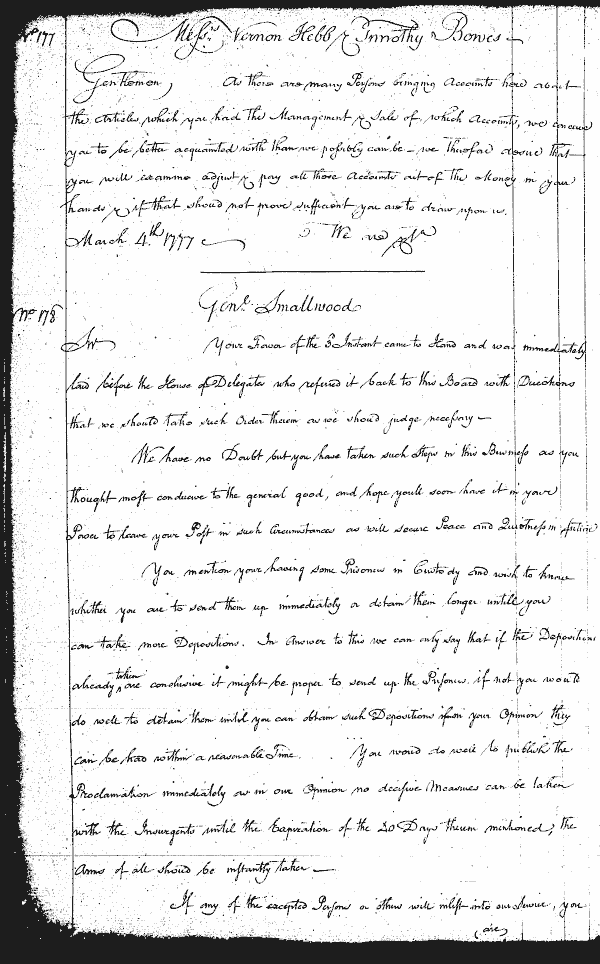 No. 177
Messrs. Vernon Hebb & Timothy Bowes
Gentlemen, As there are many Persons bringing Accounts here about
the Articles which you had the Management & Sale of, which Accounts, we conceive
you to be better acquainted with than we possibly can be – we therefore desire that
you will examine adjust & pay all those Accounts out of the Money in your
hands & if that should not prove sufficient you are to draw upon us.
March 4.th 1777 We are &ca
No. 178
Genl. Smallwood
Sir Your Favor of the 3d Instant came to Hand and was immediately
laid before the House of Delegates who referred it back to this Board with Directions
that we should take such Order therein as we should judge necessary –
We have no Doubt but you have taken such Steps in this Business as you
thought most conducive to the general good, and hope youll soon have it in your
Power to leave your Post in such Circumstances as will secure Peace and Quietness in future
You mention your having some Prisoners in Custody and wish to know
whether you are to send them up immediately or detain them longer untill you
can take more Depositions. In Answer to this we can only say that if the Depositions
already taken are conclusive it might be proper to send up the Prisoners if not you would
do well to detain them until you can obtain such Depositions if in your Opinion they
can be had within a reasonable Time. You would do well to publish the
Proclamation immediately as in our Opinion no decisive Measures can be taken
with the Insurgents until the Expiration of the 40 Days therein mentioned; the
Arms of all should be instantly taken –
If any of the excepted Persons or others will inlist into our Service, you
are